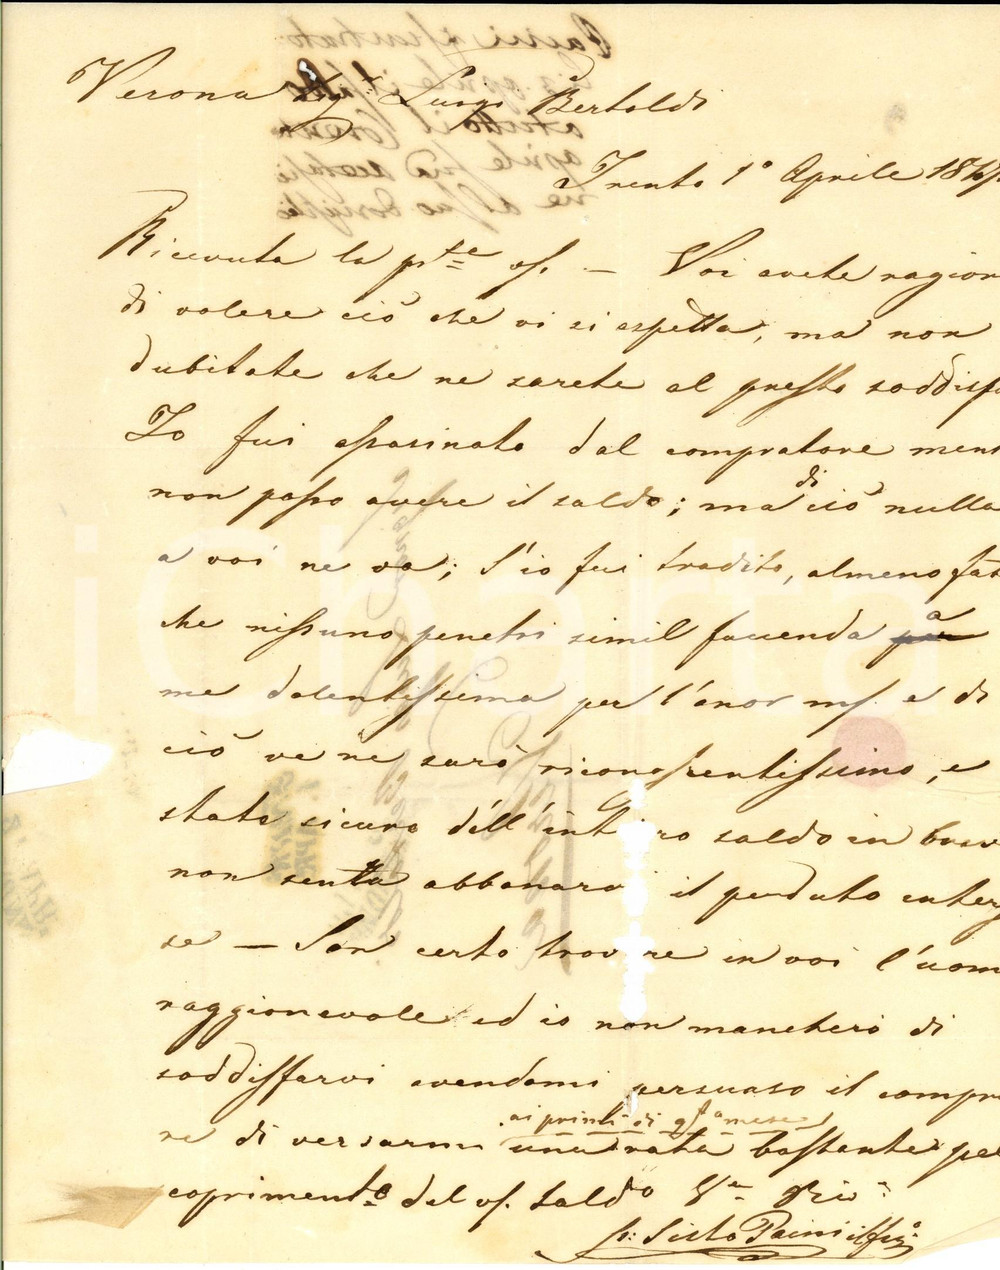 Verona Sigr Luigi Bertoldi
Trento 1° Aprile 184
Ricevuta la pte vs. — Voi avete ragion
di volere ciò che vi si aspetta, ma non
dubitate che ne sarete al presto soddisf
Io fui assasinato dal compratore men
non posso avere il saldo; ma di ciò nulla
a voi ne va; s'io fui tradito, almeno fat
che nissuno penetri simil facenda a
me dolentissima per l'onor ms. e di
ciò ve ne sarò riconossentissimo, e
state sicuro dell'intiero saldo in
non senza abbonarvi il perduto inter
se — Son certo trovare in voi l'uom
raggionevole ed io non mancherò di
soddisfarvi avendomi persuaso il compr
ai primi di qsto mese
re di versarmi una rata bastante pel
coprimento del vs. saldo
p: Sisto Paini il figo
iCharta